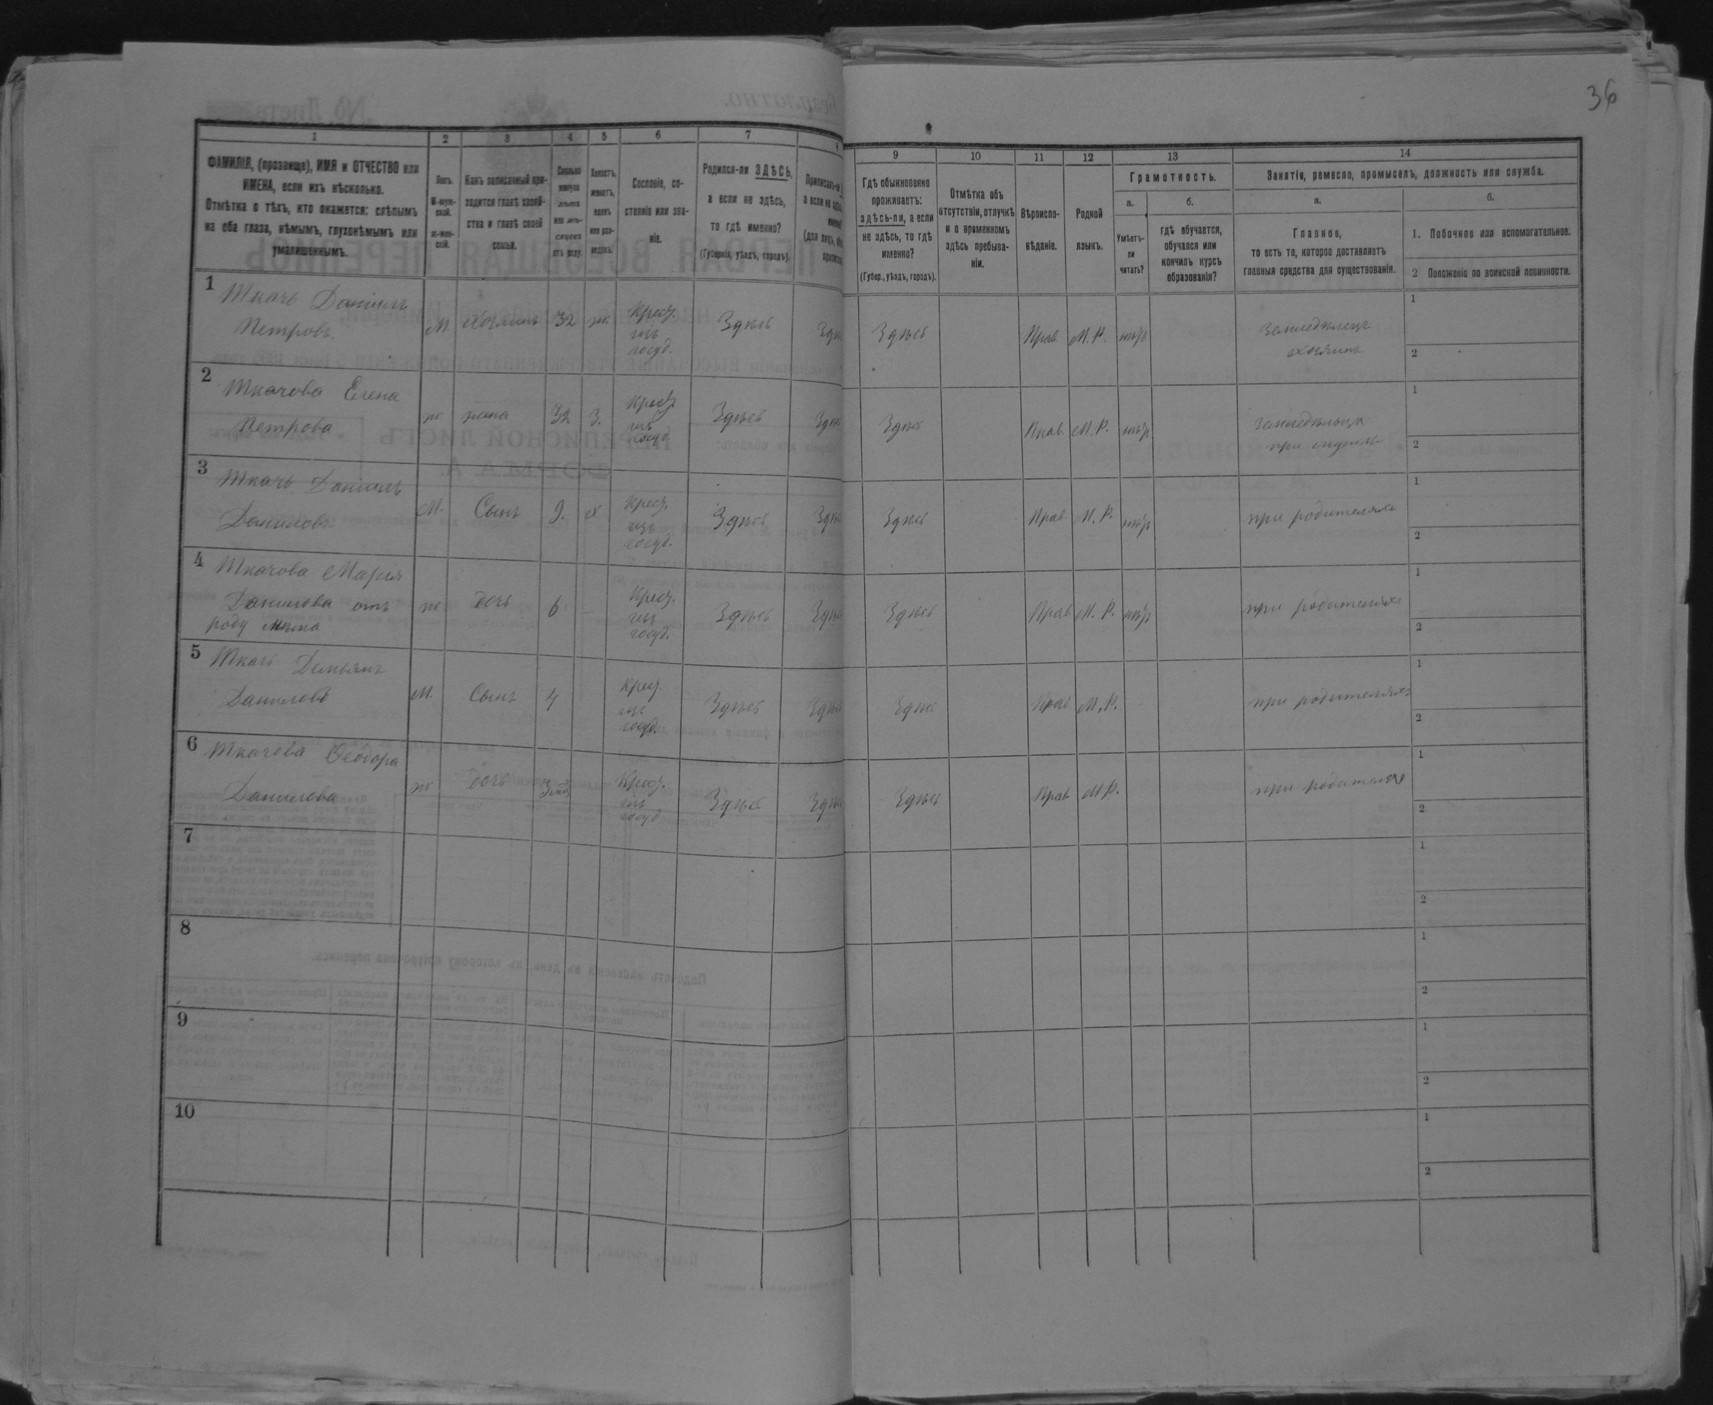 36
1
2
3
4
5
6
7
ФАМИЛІЯ, (прозвище), ИМЯ и ОТЧЕСТВО или
ИМЕНА, если ихъ нѣсколько.
Отмѣтка о тѣхъ, кто окажется: слѣпымъ
на оба глаза, нѣмымъ, глухонѣмымъ или
умалишеннымъ.
Полъ.
Какъ записанный при-
ходится главѣ хозяй-
ства и главѣ своей
семьи.
Сословіе, со-
стояніе или зва-
ніе.
Родился-ли ЗДѢСЬ,
а если не здѣсь,
то гдѣ именно?
(Губернія, уѣздъ, городъ).
9
10
11
12
13
14
Гдѣ обыкновенно
проживаетъ:
здѣсь-ли, а если
не здѣсь, то гдѣ
именно?
(Губер., уѣздъ, городъ).
Отмѣтка объ
отсутствіи, отлучкѣ
и о временномъ
здѣсь пребыва-
ніи.
Вѣроиспо-
вѣданіе.
Родной
языкъ.
Грамотность.
а.
Умѣетъ-
ли
читать?
б.
гдѣ обучается,
обучался или
кончилъ курсъ
образованія?
Занятіе, ремесло, промыселъ, должность или служба.
а.
Главное,
то есть то, которое доставляетъ
главныя средства для существованія.
б.
1. Побочное или вспомогательное.
2 Положеніе по воинской повинности.
1
Ткачъ Даніилъ
Петровъ
М
хозяинъ
32
ж.
Крест.
изъ
госуд.
Здѣсь
Здѣсь
Прав.
М.Р.
нѣтъ
Земледѣлецъ
хозяинъ
1
2
2
Ткачова Елена
Петрова
ж
жена
32
З.
Крест.
изъ
госуд.
Здѣсь
Здѣсь
Прав.
М.Р.
нѣтъ
1
2
3
Ткачъ Даніилъ
Даниловъ
М.
Сынъ
9.
х
Крест.
изъ
госуд.
Здѣсь
Здѣсь
Прав.
М.Р.
нѣтъ
при родителяхъ
1
2
4
Ткачова Марія
Данилова отъ
роду нѣма
ж
дочь
6
Крест.
изъ
госуд.
Здѣсь
Здѣсь
Прав
М.Р.
нѣтъ
при родителяхъ
1
2
5
Ткачъ Демьянъ
Даниловъ
М.
Сынъ
4
Крест.
изъ
госуд.
Здѣсь
Здѣсь
Прав
М.Р.
при родителяхъ
1
2
6
Ткачова Ѳеодора
Данилова
ж
дочь
Крест.
изъ
госуд
Здѣсь
Здѣсь
Прав
М.Р.
при родителяхъ
1
2
7
1
2
8
1
2
9
1
2
10
1
2